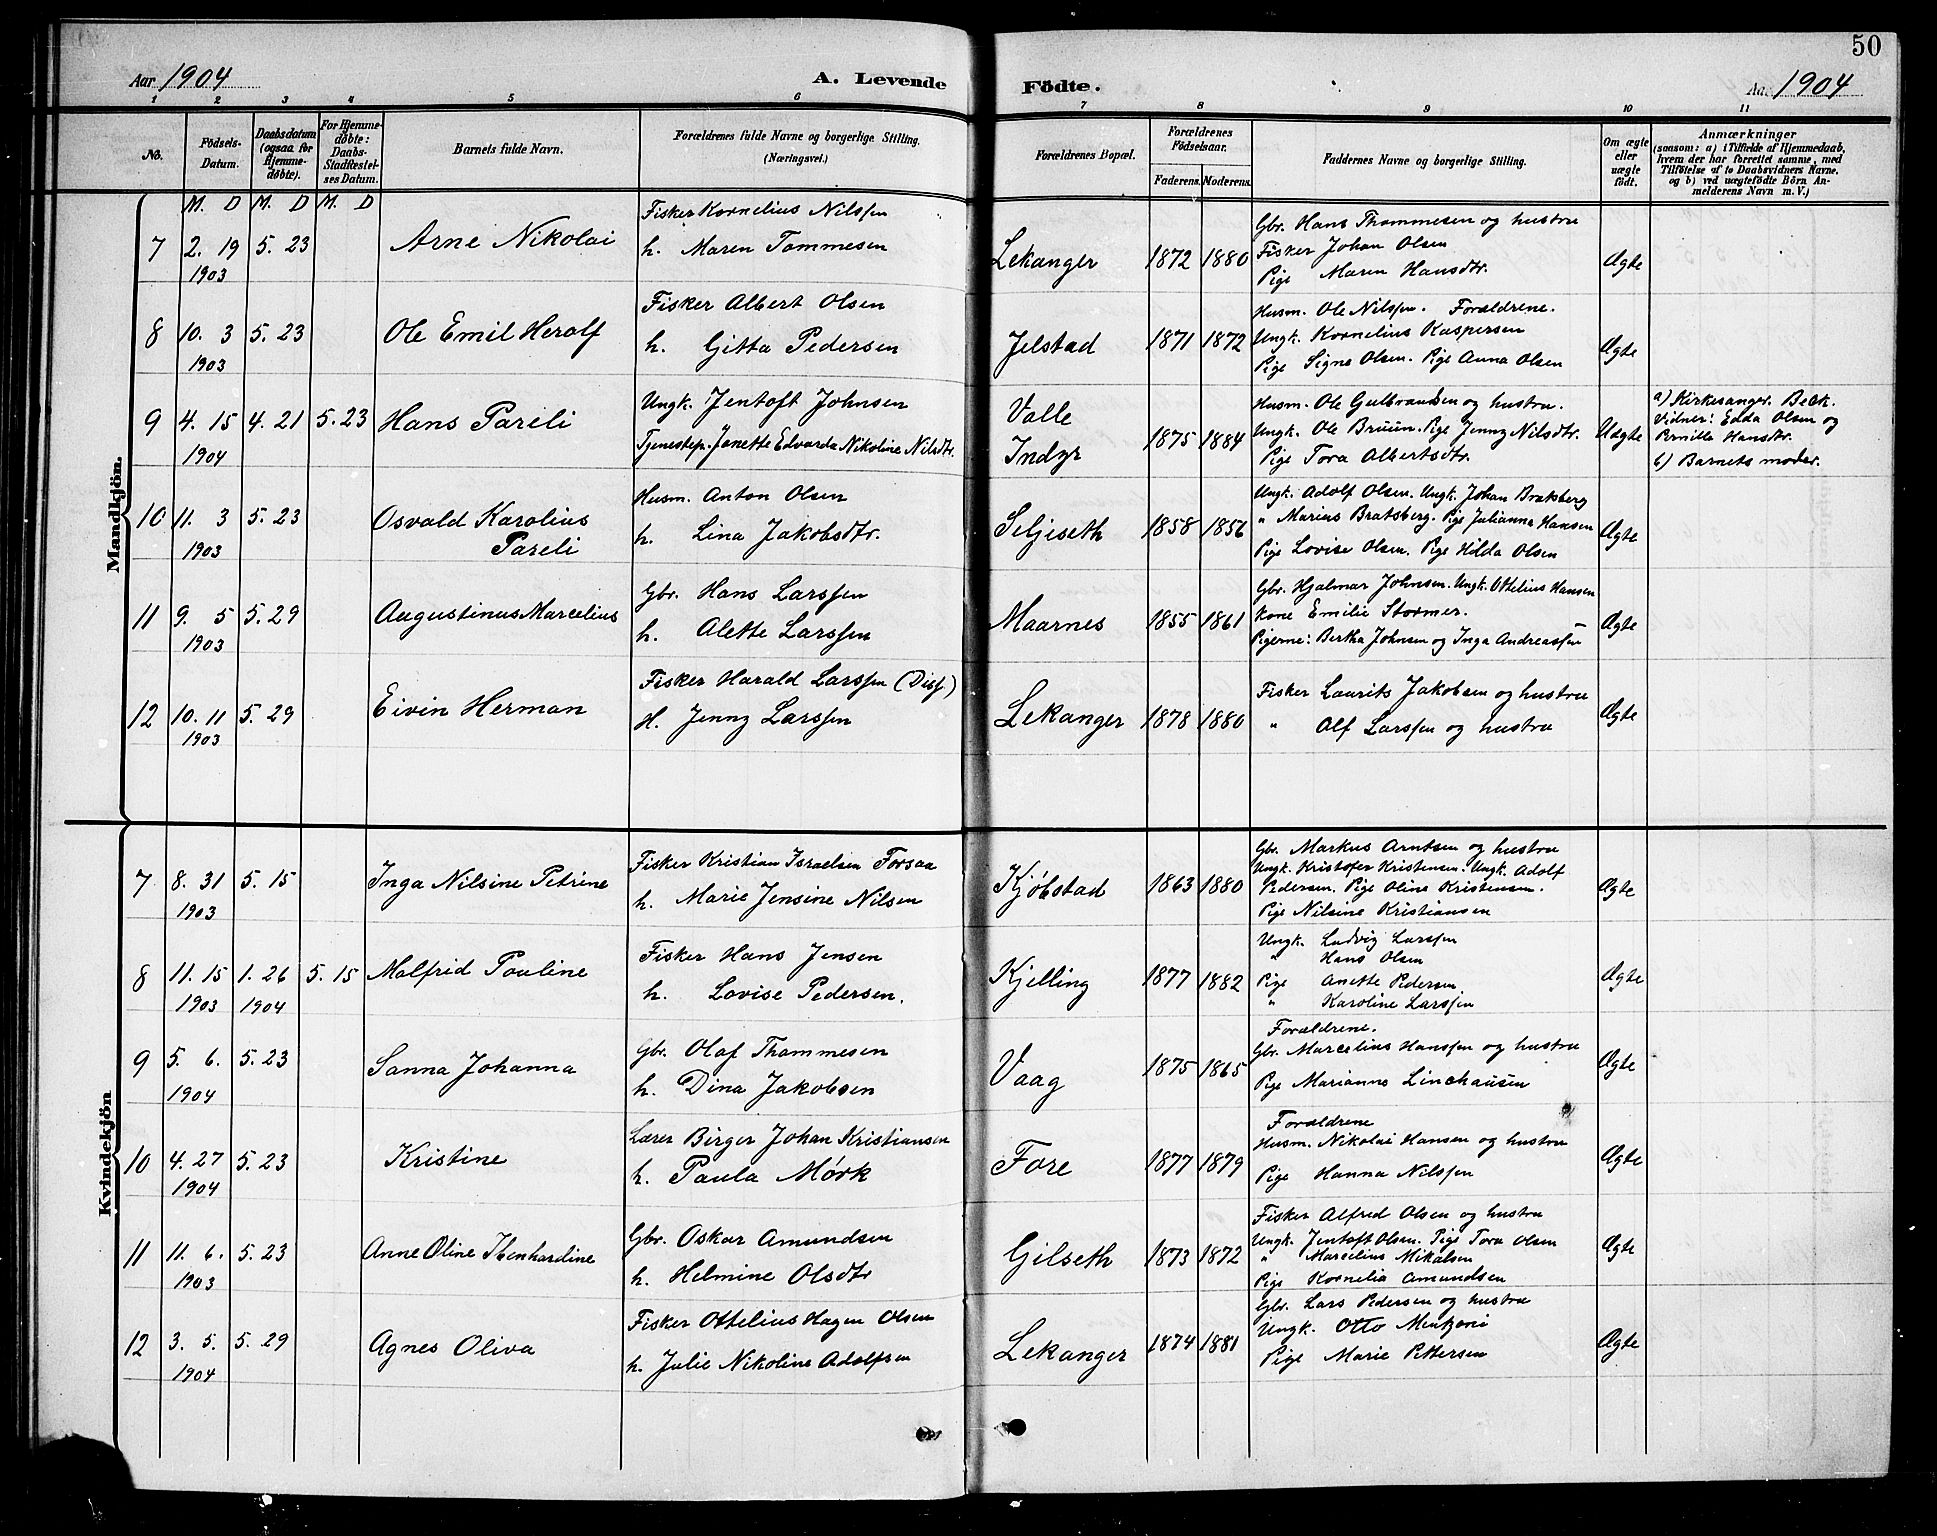 50
Aar 1904 A. Levende Födte. Aar 1904
1 2 3 4 5 6 7 8 9 10 11
No. Födsels-Datum. Daabsdatum (ogsaa for Hjemme-døbte). For Hjemme-døbte: Daabs-Stadfestel-ses Datum. Barnets fulde Navn. Forældrenes fulde Navne og borgerlige Stilling. (Næringsvei.) Forældrenes Bopæl. Forældrenes Födselsaar. Faderens. Moderens. Faddernes Navne og borgerlige Stilling. Om ægte eller uægte födt. Anmærkninger (saasom: a) i Tilfælde af Hjemmedaab, hvem der har forrettet samme, med Tilföielse af to Daabsvidners Navne, og b) ved uægtefödte Börn Anmelderens Navn m. V.)
M. D M. D M. D
Mandkjön.
7 2. 19 1903 5. 23 Arne Nikolai
Fisker Kornelius Nilssen
h. Maren Tommesen
Lekanger 1872 1880
Gbr. Hans Thommesen og hustru
Fisker Johan Olsen
Pige Maren Hansdtr.
Ægte
8 10. 3 1903 5. 23 Ole Emil Herolf
Fisker Albert Olsen
h. Gitta Pedersen
Jelstad 1871 1872
Husm. Ole Nilssen. Forældrene.
Ungk. Kornelius Kaspersen
Pige Signe Olsen. Pige Anna Olsen
Ægte
9 4. 15 1904 4. 21 5. 23 Hans Pareli
Ungk. Jentoft Johnsen
Tjenestep. Janette Edvarda Nikoline Nilsdtr.
Valle
Indyr
1875 1884
Husm. Ole Gulbrandsen og hustru.
Ungk. Ole Bruun. Pige Jenny Nilsdtr.
Pige Tora Albertsdtr.
Uægte
a) Kirkesanger Beck.
Vidner: Edda Olsen og
Pernille Hansdtr.
b) Barnets moder.
10 11. 3 1903 5. 23 Osvald Karolius
Pareli
Husm. Anton Olsen
h. Lina Jakobsdtr.
Seljeseth 1858 1856
Ungk. Adolf Olsen. Ungk. Johan Bratsberg
" Marius Bratsberg. Pige Julianna Hansen
Pige Lovise Olsen. Pige Hilda Olsen
Ægte
11 9. 5 1903 5. 29 Augustinus Marcelius
Gbr. Hans Larssen
h. Alette Larssen
Maarnes 1855 1861
Gbr. Hjalmar Johnsen. Ungk. Ottelius Hansen
Kone Emilie Stormer.
Pigerne: Bertha Johnsen og Inga Andreassen
Ægte
12 10. 11 1903 5. 29 Eivin Herman
Fisker Harald Larssen (Diss.)
H. Jenny Larssen
Lekanger 1878 1880
Fisker Laurits Jakobsen og hustru
" Alf Larssen og hustru
Ægte
Kvindekjön
7 8. 31 1903 5. 15 Inga Nilsine Petrine
Fisker Kristian Israelsen Forsaa
h. Marie Jensine Nilsen
Kjøbstad 1863 1880
Gbr. Markus Arntsen og hustru
Ungk. Kristofer Kristensen. Ungk. Adolf
Pedersen. Pige Oline Kristensen.
Pige Nilsine Kristiansen
Ægte
8 11. 15 1903 1. 26 1904 5. 15 Malfrid Pouline
Fisker Hans Jensen
h. Lovise Pedersen.
Kjelling 1877 1882
Ungk. Ludvig Larssen
" Hans Olsen
Pige Anette Pedersen
" Karoline Larssen
Ægte
9 5. 6. 1904 5. 23 Sanna Johanna
Gbr. Olaf Thommesen
h. Dina Jakobsen
Vaag 1875 1865
Forældrene.
Gbr. Marcelius Hanssen og hustru
Pige Marianne Linchausen
Ægte
10 4. 27 1904 5. 23 Kristine
Lærer Birger Johan Kristiansen
h. Paula Mørk
Fore 1877 1879
Forældrene
Husm. Nikolai Hansen og hustru
Pige Hanna Nilssen
Ægte
11 11. 6. 1903 5. 23 Anne Oline Ibenhardine
Gbr. Oskar Amundsen
h. Helmine Olsdtr
Gilseth 1873 1872
Fisker Alfred Olsen og hustru
Ungk. Jentoft Olsen. Pige Tora Olsen
" Marcelius Mikalsen
Pige Kornelia Amundsen
Ægte
12 3. 5. 1904 5. 29 Agnes Oliva
Fisker Ottelius Hagen Olsen
h. Julie Nikoline Adolfsen
Lekanger 1874 1881
Gbr. Lars Pedersen og hustru
Ungk. Otto
Pige Marie Pettersen
Ægte